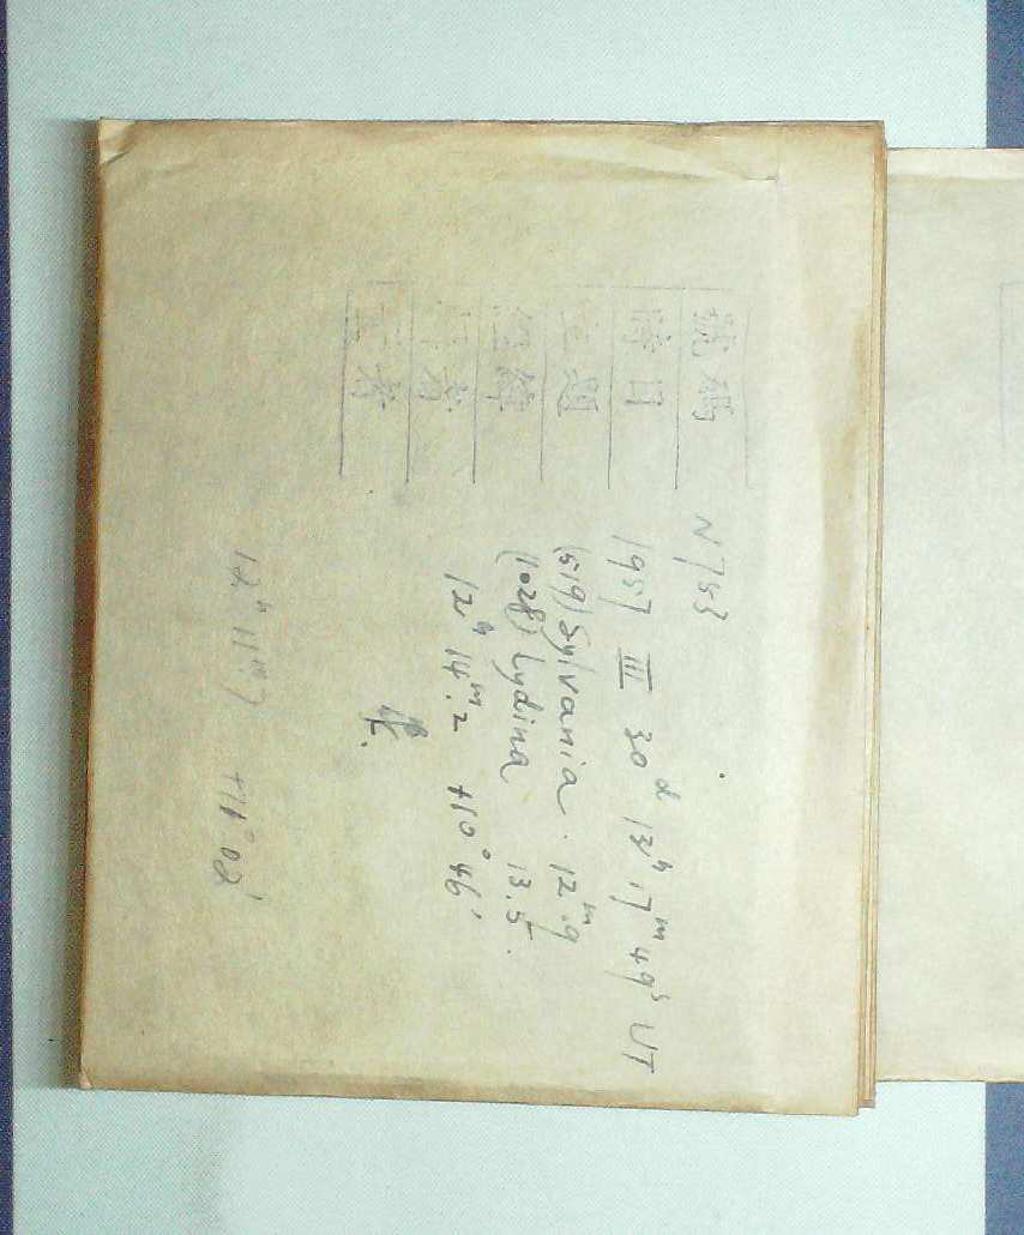 號碼 N753
時日 1957 III 30ᵈ 13ʰ 17ᵐ 49ˢ UT
主題 (519) Sylvania. 12ᵐ.9
(1028) Lydina 13.5.
經緯 12ʰ 14ᵐ.2 +10° 46′
者
者
12ʰ 11ᵐ.7 +11° 02′